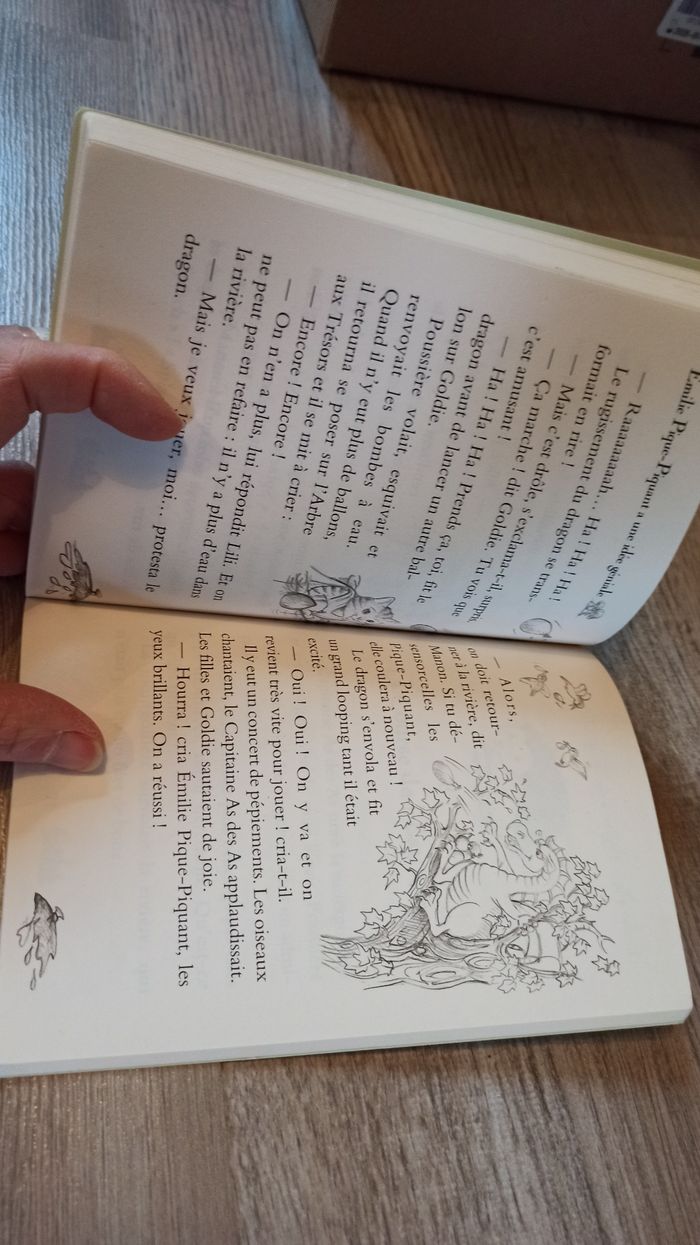 Émilie Pique-Piquant a une idée géniale
— Raaaaaaaah… Ha ! Ha ! Ha !
Le rugissement du dragon se trans-
formait en rire !
— Mais c'est drôle, s'exclama-t-il, surpris,
c'est amusant !
— Ça marche ! dit Goldie. Tu vois que
— Ha ! Ha ! Ha ! Prends ça, toi, fit le
dragon avant de lancer un autre bal-
lon sur Goldie.
Poussière volait, esquivait et
renvoyait les bombes à eau.
Quand il n'y eut plus de ballons,
il retourna se poser sur l'Arbre
aux Trésors et il se mit à crier :
— Encore ! Encore !
— On n'en a plus, lui répondit Lili. Et on
ne peut pas en refaire : il n'y a plus d'eau dans
la rivière.
— Mais je veux jouer, moi… protesta le
dragon.
— Alors,
on doit retour-
ner à la rivière, dit
Manon. Si tu dé-
sensorcelles les
Pique-Piquant,
elle coulera à nouveau !
Le dragon s'envola et fit
un grand looping tant il était
excité.
— Oui ! Oui ! On y va et on
revient très vite pour jouer ! cria-t-il.
Il y eut un concert de pépiements. Les oiseaux
chantaient, le Capitaine As des As applaudissait.
Les filles et Goldie sautaient de joie.
— Hourra ! cria Émilie Pique-Piquant, les
yeux brillants. On a réussi !